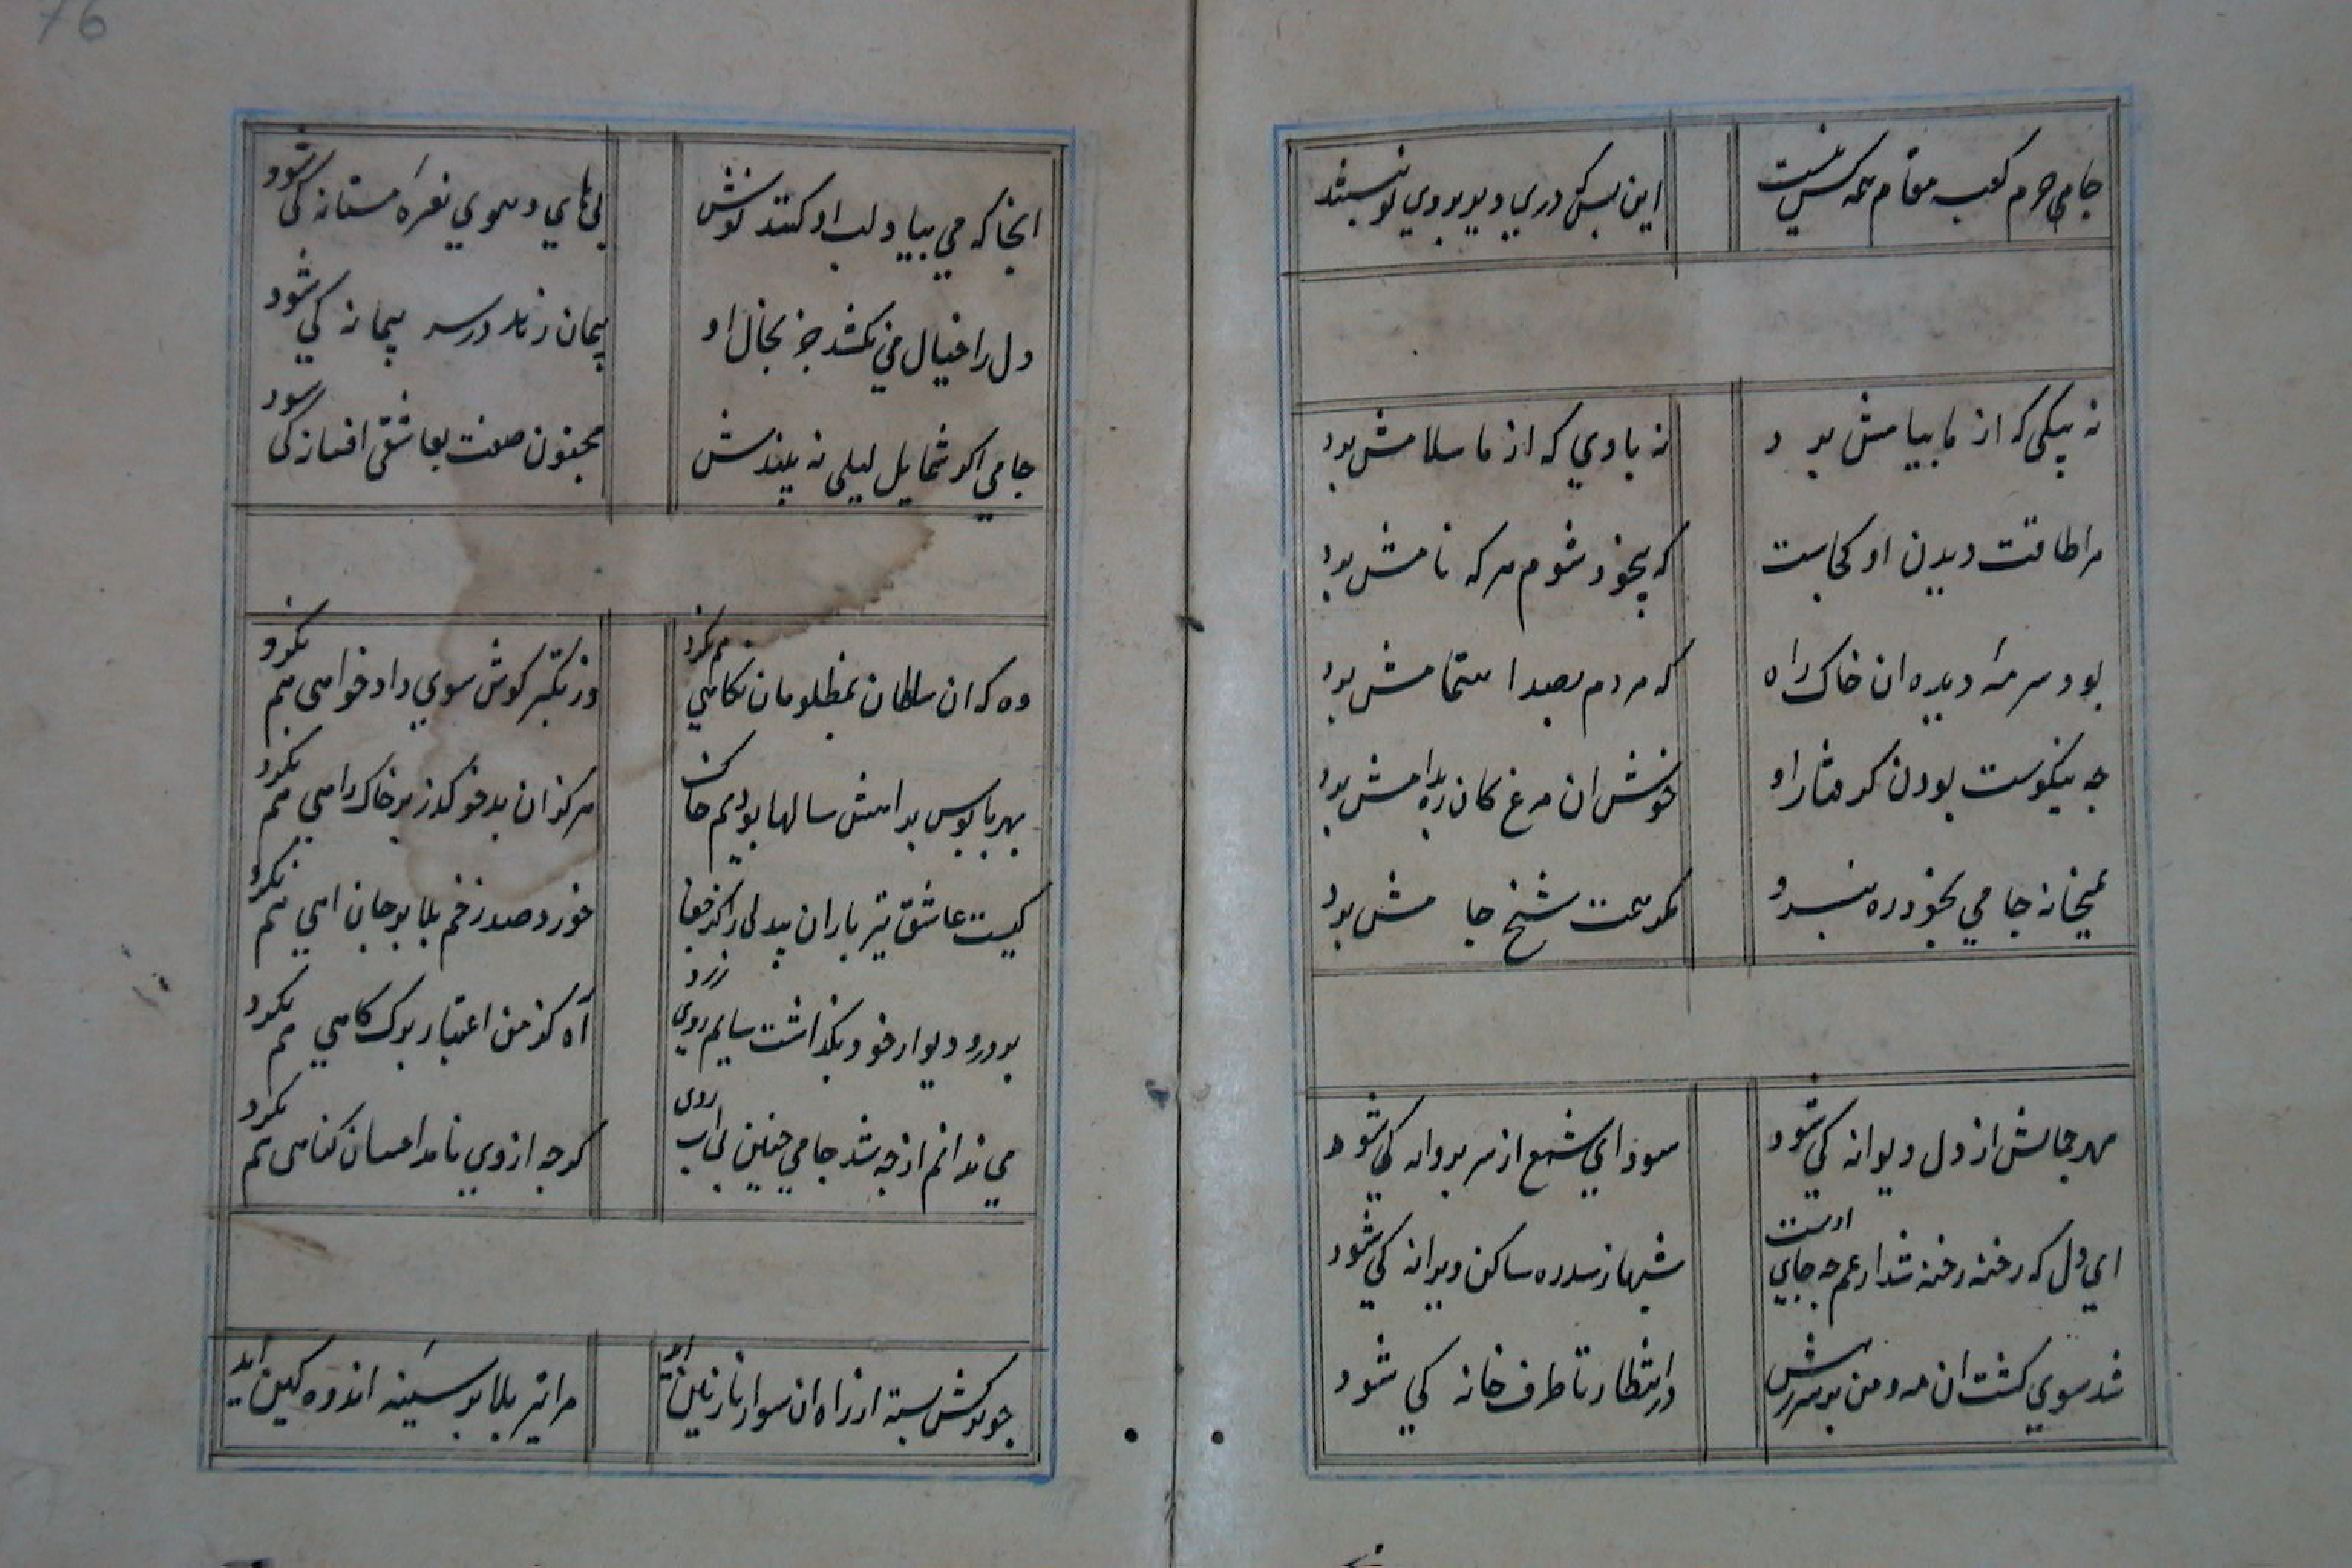 جامي حرم كعبه مقام همه كس نيست
اين بس كه دري ديو بروي تو نبستند
نه پيكي كه از ما پيامش برد
نه بادي كه از ما سلامش برد
مرا طاقت ديدن او كجاست
كه بيخود شوم هر كه نامش برد
بود سرمه ديده ان خاك راه
كه مردم بصد اهتمامش برد
چه نيكوست بودن گرفتار او
خوش ان مرغ كان ره بدامش برد
بميخانه جامي بخود ره نبرد
مگر همت شيخ جا مش برد
مهر جمالش از دل ديوانه كي شود
سوداي شمع از سر پروانه كي شود
اي دل كه رخنه رخنه شد از غم چه جاي اوست
شهباز سدره ساكن ويرانه كي شود
شد سوي كشت ان مه و من بر سر رهش
در انتظار تا طرف خانه كي شود
انجا كه مي بياد لب او كنند نوش
بي هاي و هوي نعره مستانه كي شود
دل را خيال مي نكشد جز بخال او
پيمان زنار در سر پيمانه كي شود
جامي اكر شمايل ليلي نه بيندش
مجنون صفت بعاشقي افسانه كي شود
وه كه ان سلطان بمظلومان نكاهي هم نكرد
وز تكبر كوش سوي داد خواهي هم نكرد
بهر پابوس براهش سالها بوديم خاك
هركز ان بدخو گذر بر خاك راهي هم نكرد
كيست عاشق تير باران بيدلي را كز جفا
خورد صد زخم بلا بر جان اهي هم نكرد
بر در و ديوار خود بكذاشت سايم روي زرد
آه كز من اعتبار برك كاهي هم نكرد
مي ندانم از چه شد جامي چنين بي اب روي
كرچه از وي نامد احسان كناهي هم نكرد
چو تركش بسته از راه ان سوار نازنين ايد
مرا تير بلا بر سينه اندوه كين ايد